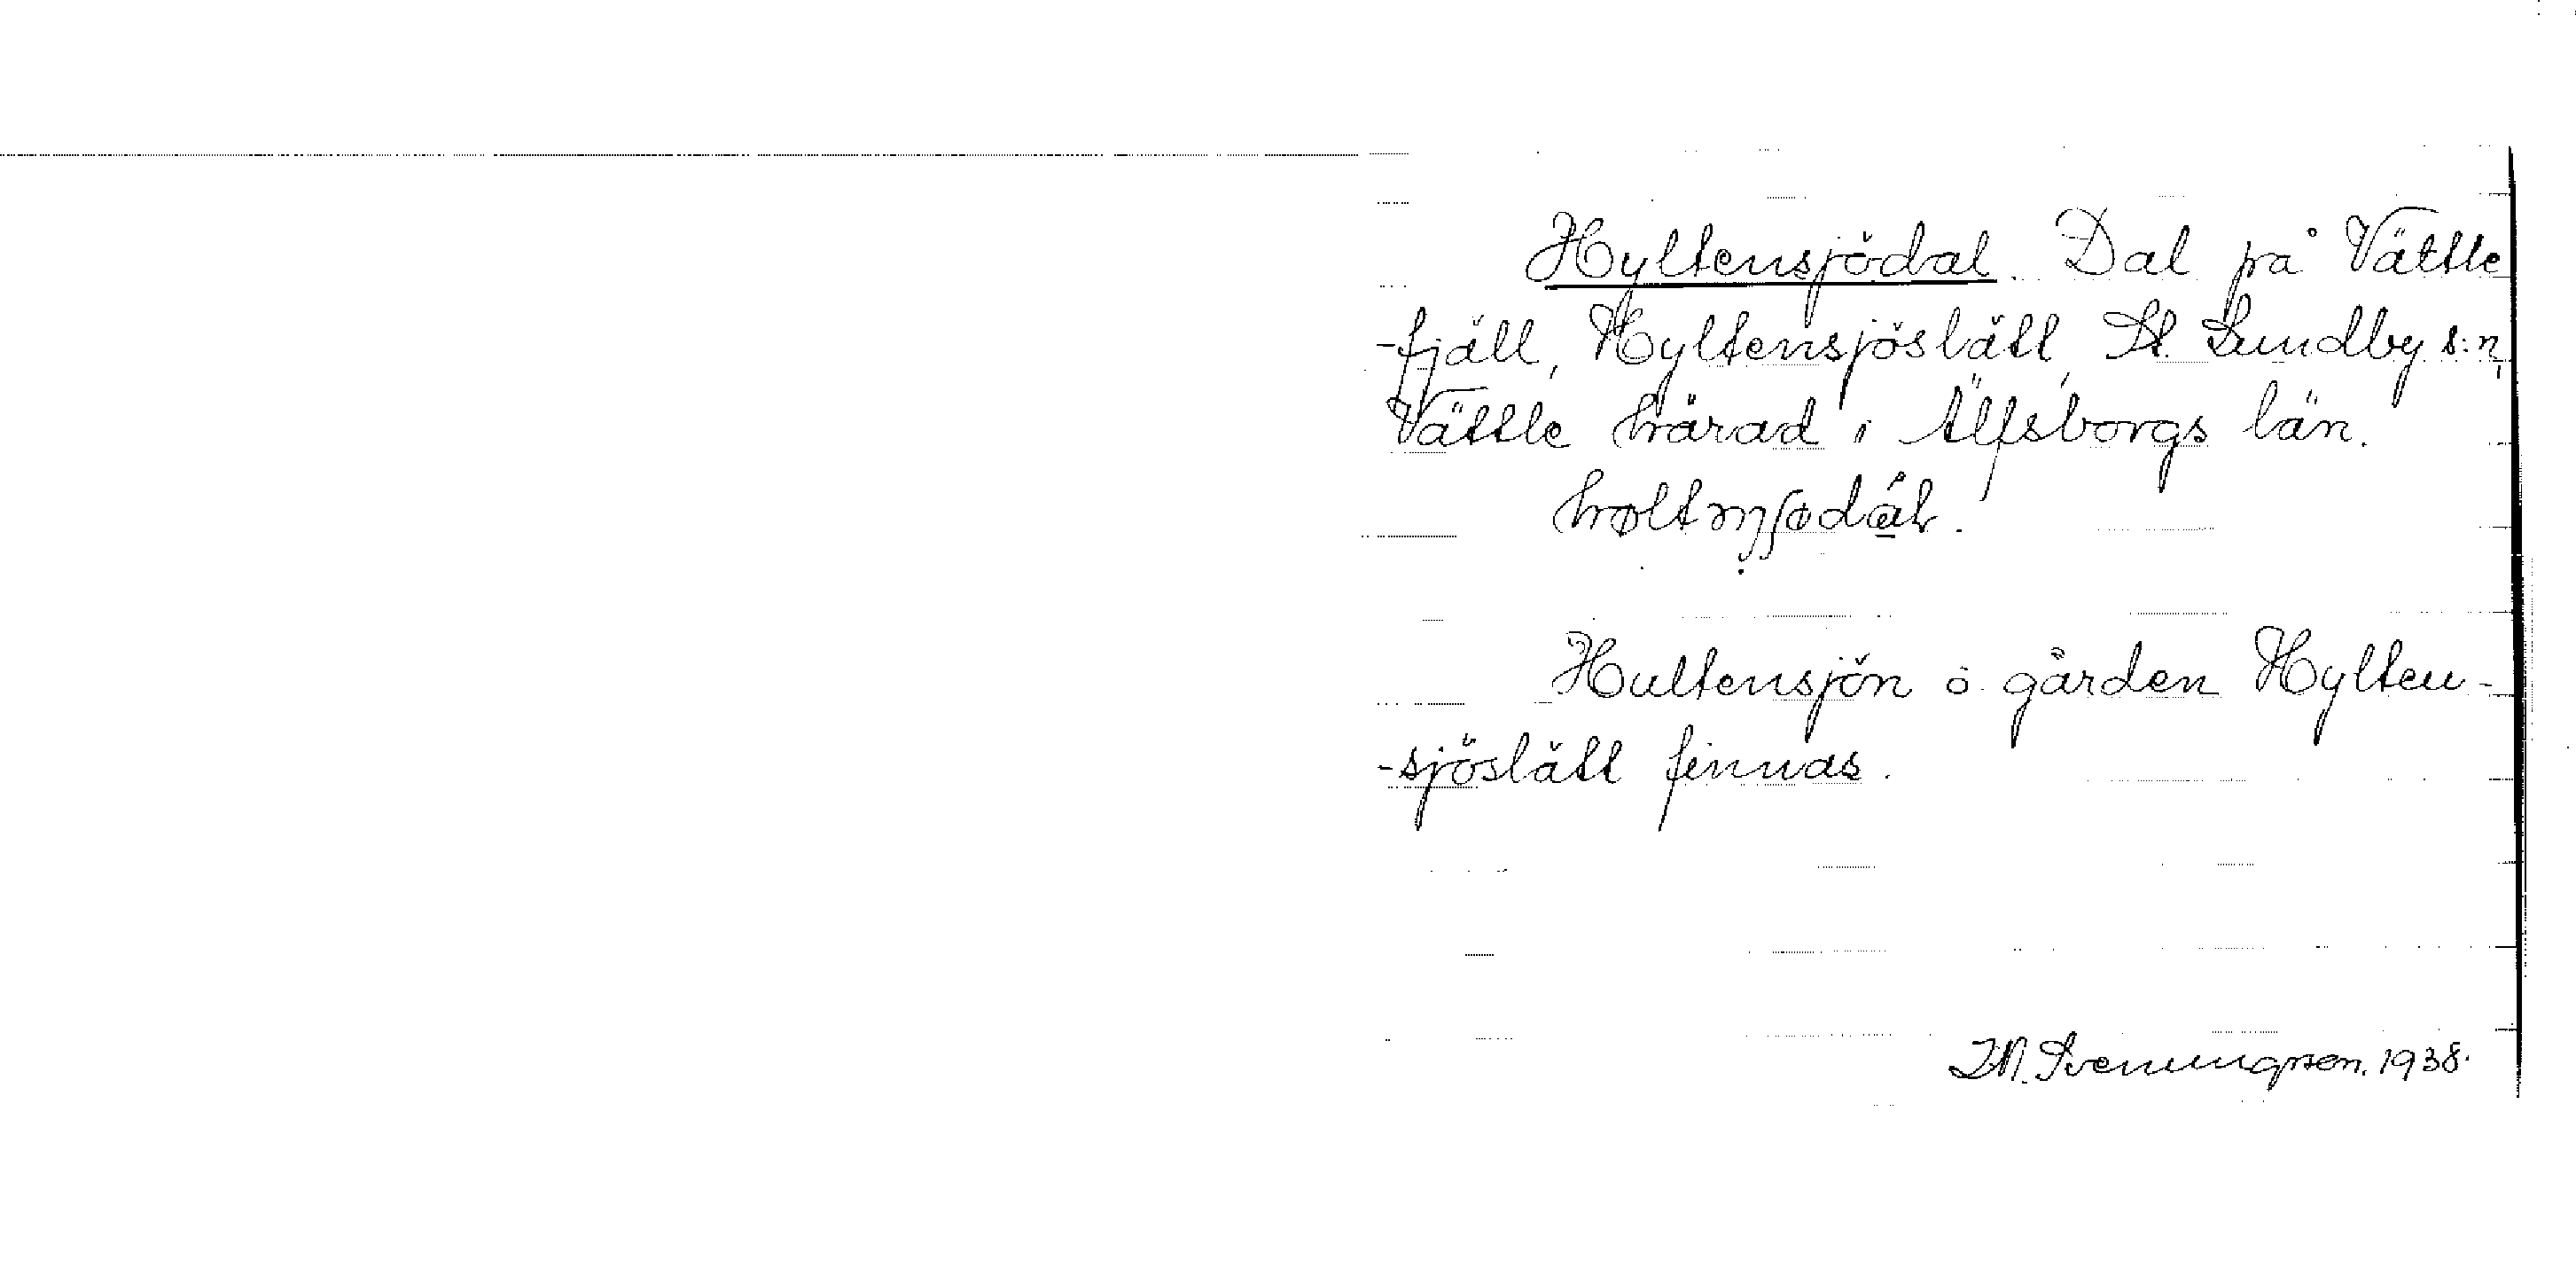 Hyltensjödal. Dal på Vättle
-fjäll, Hyltensjöslätt, St. Lundby s:n,
Vättle härad i Älfsborgs län.
Hultensjön o. gården Hylten-
-sjöslätt finnas.
Svenungsson. 1938.